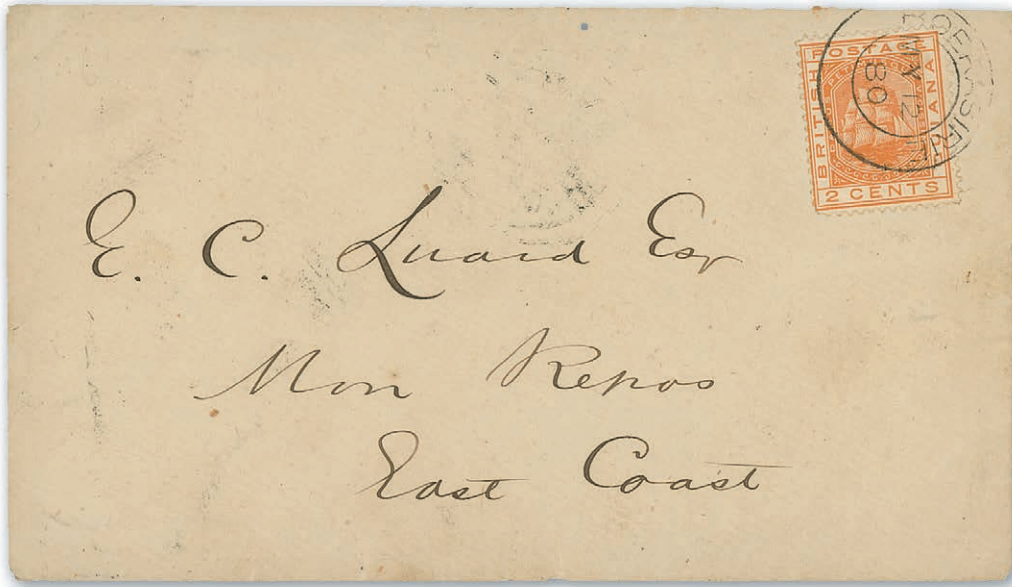 POSTAGE
BRITISH
GUIANA
2 CENTS
MY 12
80
E. C. Luard Esqr
Mon Repos
East Coast